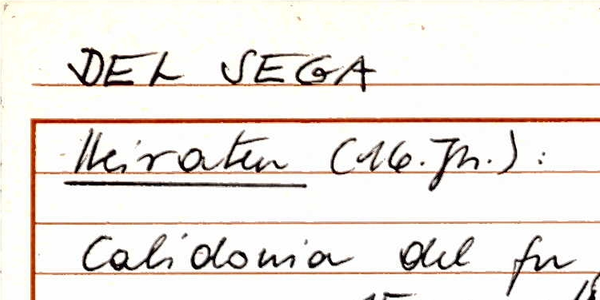 DEL SEGA
Heiraten (16. Jh.):
Calidonia del fu
15